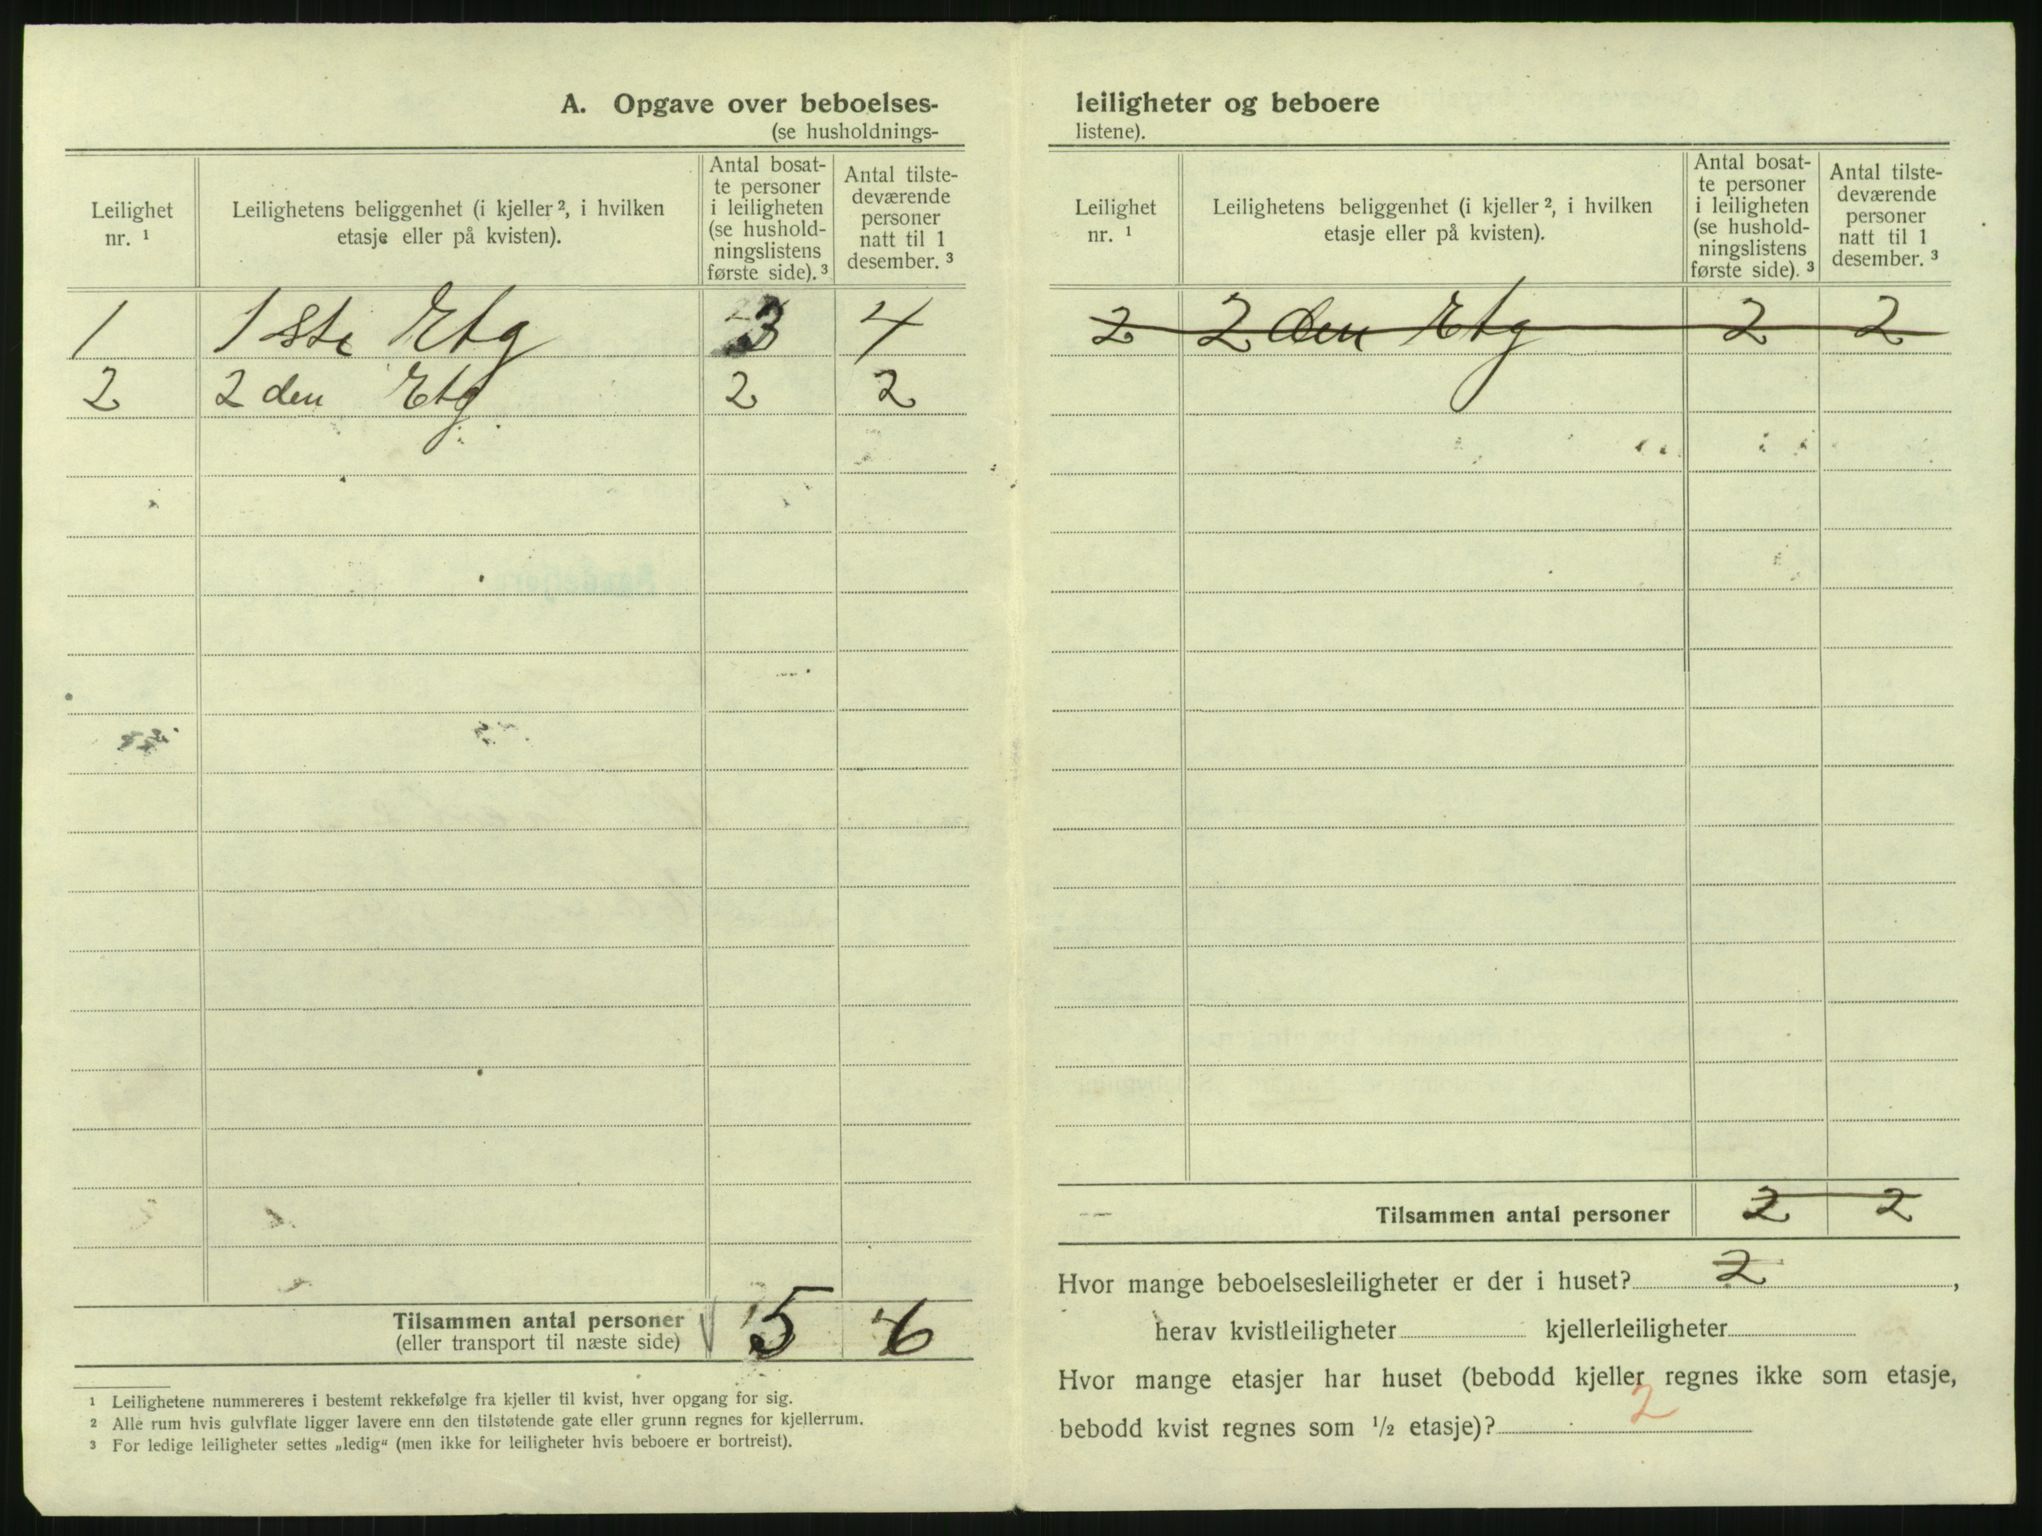 A. Opgave over beboelses-
(se husholdnings-
Leilighet nr. ¹
Leilighetens beliggenhet (i kjeller ², i hvilken etasje eller på kvisten).
Antal bosat-
te personer
i leiligheten
(se hushold-
ningslistens
første side). ³
Antal tilste-
deværende
personer
natt til 1
desember. ³
1 1ste Etg 3 4
2 2den Etg 2 2
Tilsammen antal personer 5 6
(eller transport til næste side)
¹ Leilighetene nummereres i bestemt rekkefølge fra kjeller til kvist, hver opgang for sig.
² Alle rum hvis gulvflate ligger lavere enn den tilstøtende gate eller grunn regnes for kjellerrum.
³ For ledige leiligheter settes „ledig“ (men ikke for leiligheter hvis beboere er bortreist).
leiligheter og beboere
listene).
Leilighet nr. ¹
Leilighetens beliggenhet (i kjeller ², i hvilken etasje eller på kvisten).
Antal bosat-
te personer
i leiligheten
(se hushold-
ningslistens
første side). ³
Antal tilste-
deværende
personer
natt til 1
desember. ³
2 2den Etg 2 2
Tilsammen antal personer 2 2
Hvor mange beboelsesleiligheter er der i huset? 2 ,
herav kvistleiligheter kjellerleiligheter
Hvor mange etasjer har huset (bebodd kjeller regnes ikke som etasje,
bebodd kvist regnes som ½ etasje)? 2